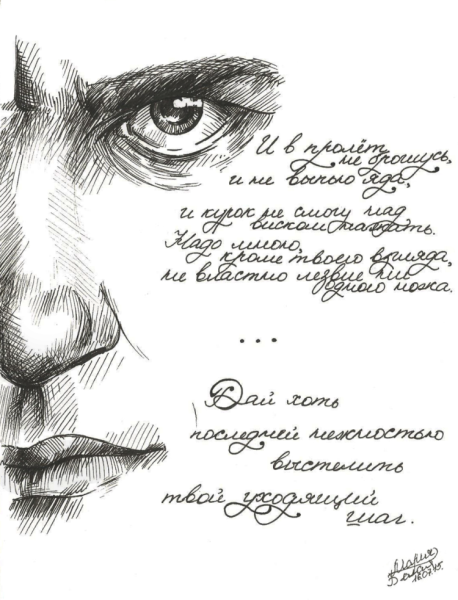 И в пролёт
не брошусь,
и не выпью яда,
и курок не смогу над
виском нажать.
Надо мною,
кроме твоего взгляда,
не властно лезвие ни
одного ножа.
...
Дай хоть
последней нежностью
выстелить
твой уходящий
шаг.
Мария